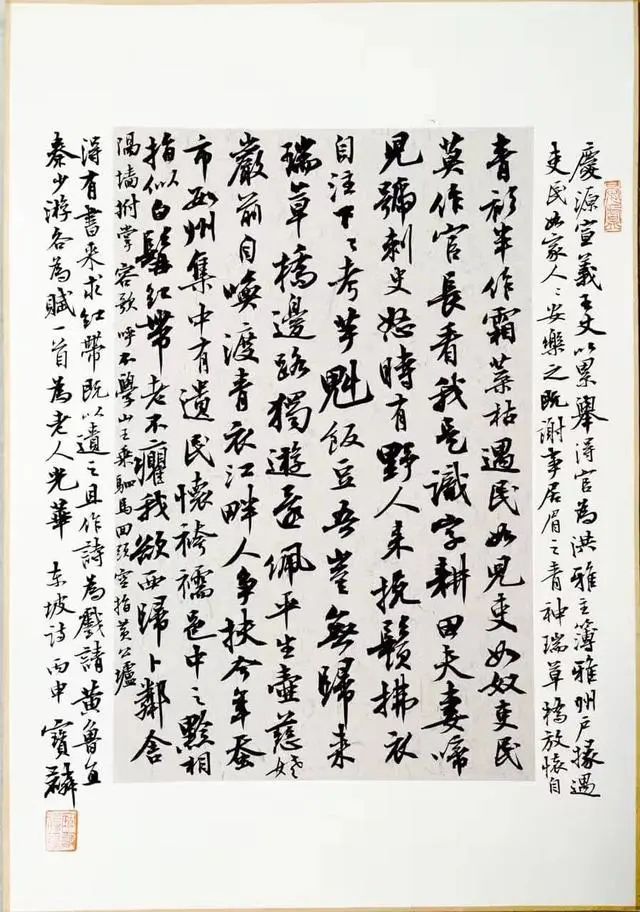 慶源宣義王丈以累舉得官為洪雅主簿雅州戶掾遇
吏民如家人々安樂之既謝事居眉之青神瑞草橋放懷自
青衫半作霜葉枯遇民如兒吏如奴吏民
莫作官長看我是識字耕田夫妻啼
兒號刺史怒時有野人来挽鬚拂衣
自注下々考芋魁飯豆吾豈無歸来
瑞草橋邊路獨遊還佩平生壺慈姥
巖前自喚渡青衣江畔人爭扶今年蚕
市數州集中有遺民懷袴襦邑中之黔相
指似白髯紅帶老不癯我欲西歸卜鄰舍
隔墻拊掌容歌呼不學山王乘駟馬回頭空指黃公壚
得有書来求紅帶既以遺之且作詩為戲請黃魯直
秦少游各為賦一首為老人光華 东坡诗 丙申 寶麟